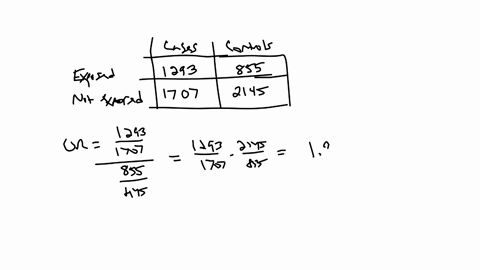 Cases Controls
Exposed 1293 855
Not exposed 1707 2145
OR = 1293/1707 / 855/2145 = 1293/1707 · 2145/855 = 1.